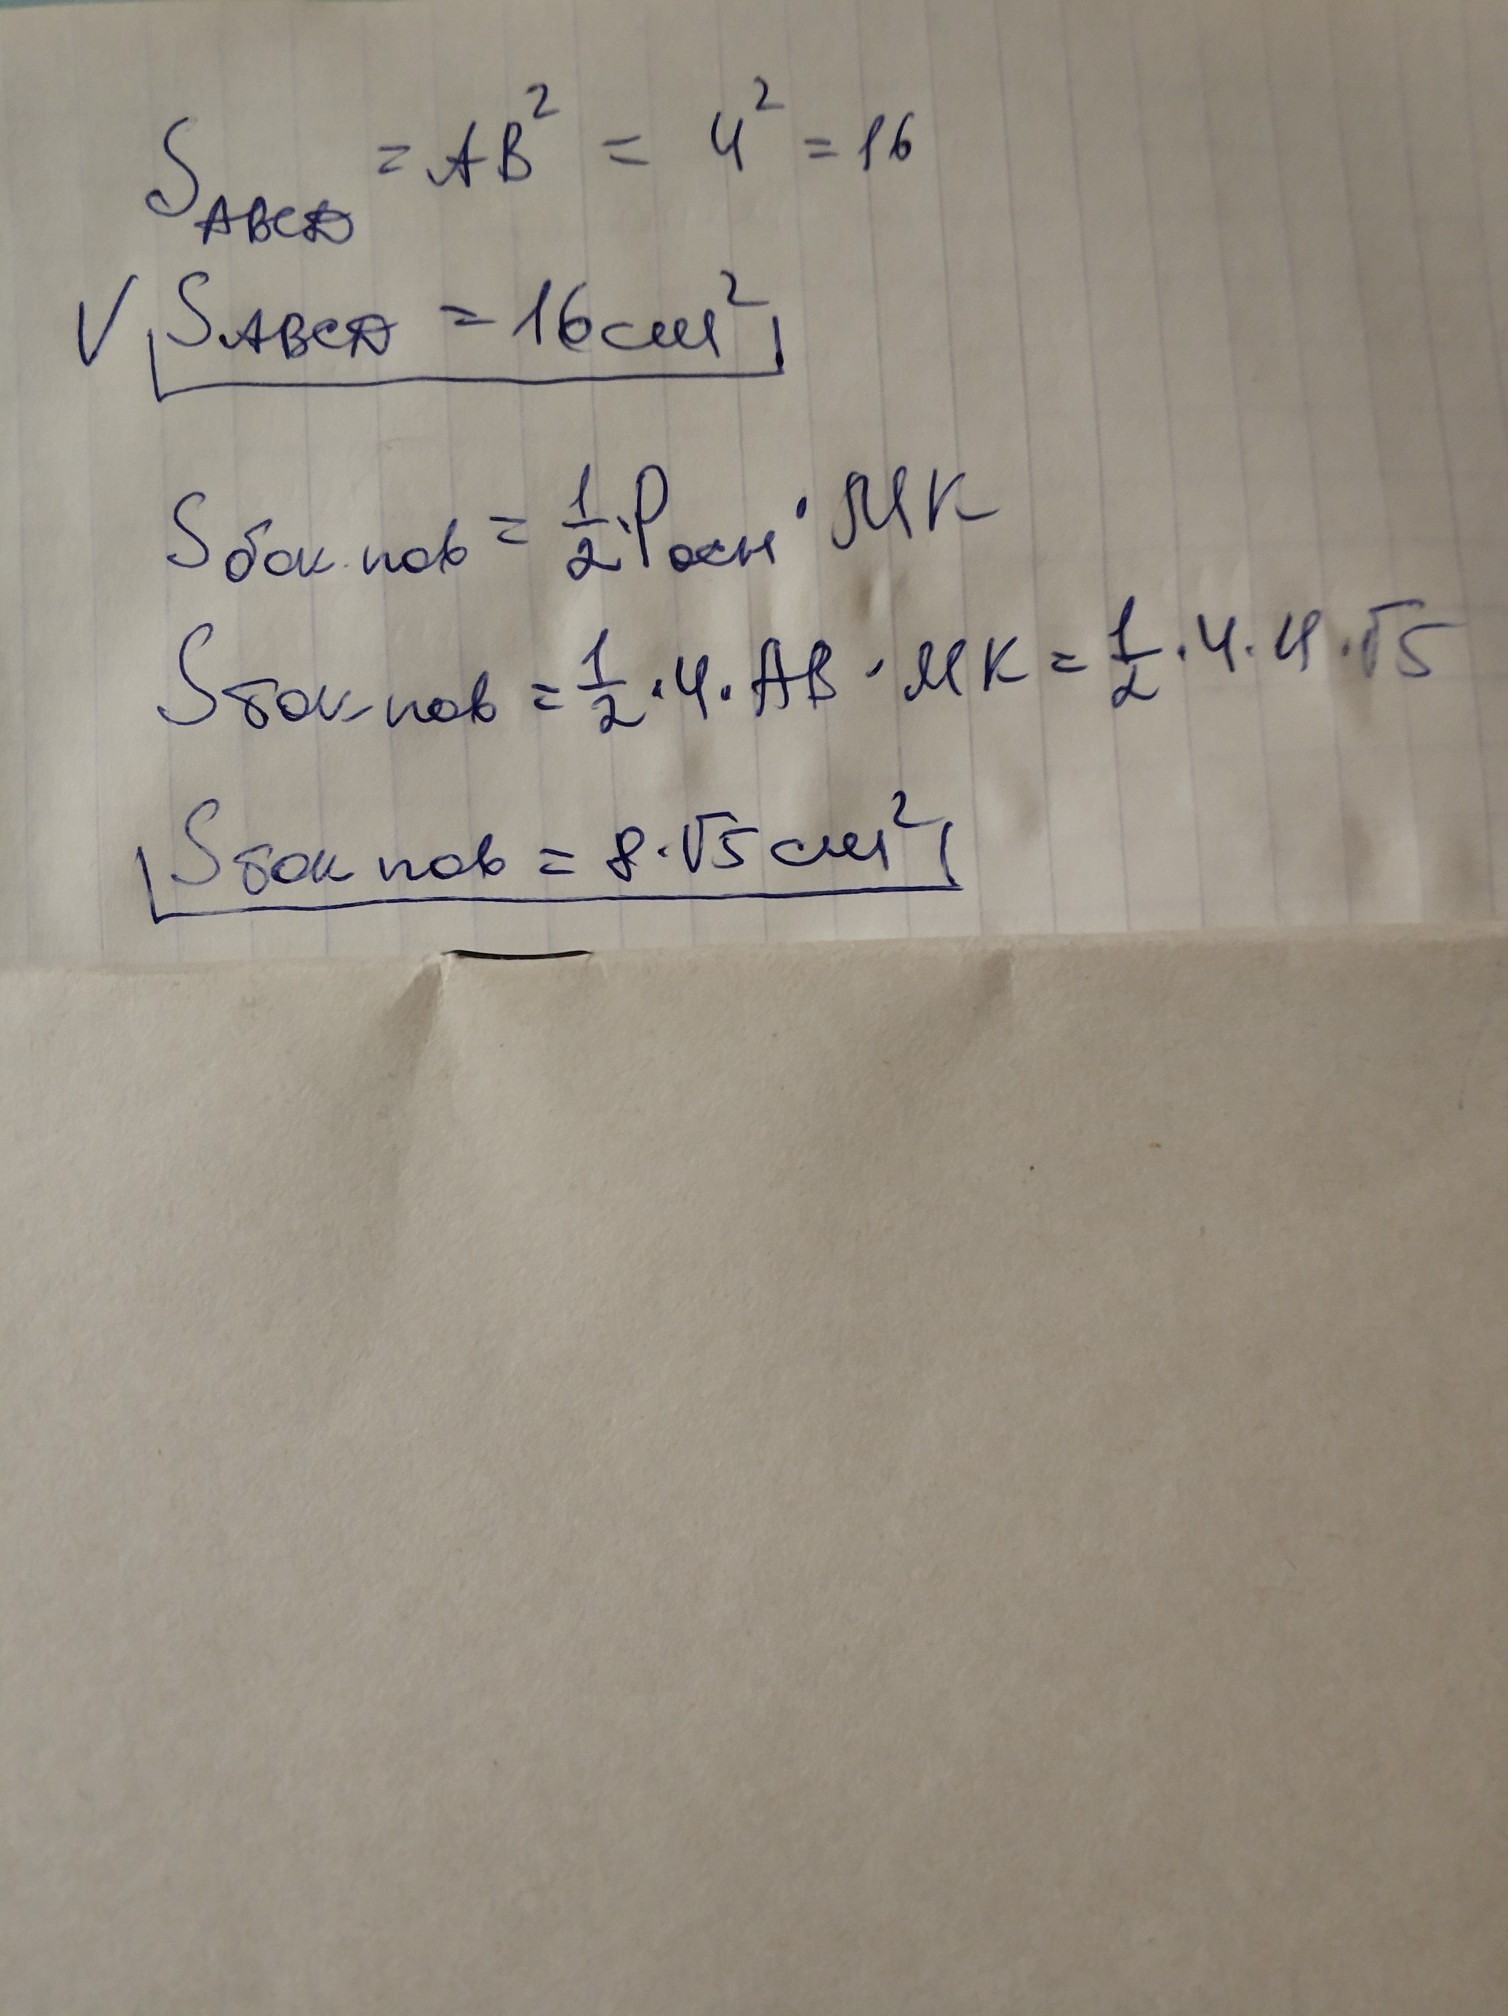 S ABCD = AB² = 4² = 16
√ S ABCD = 16 см²
S бок. пов = 1/2 · P осн · MK
S бок пов = 1/2 · 4 · AB · MK = 1/2 · 4 · 4 · √5
S бок пов = 8 · √5 см²